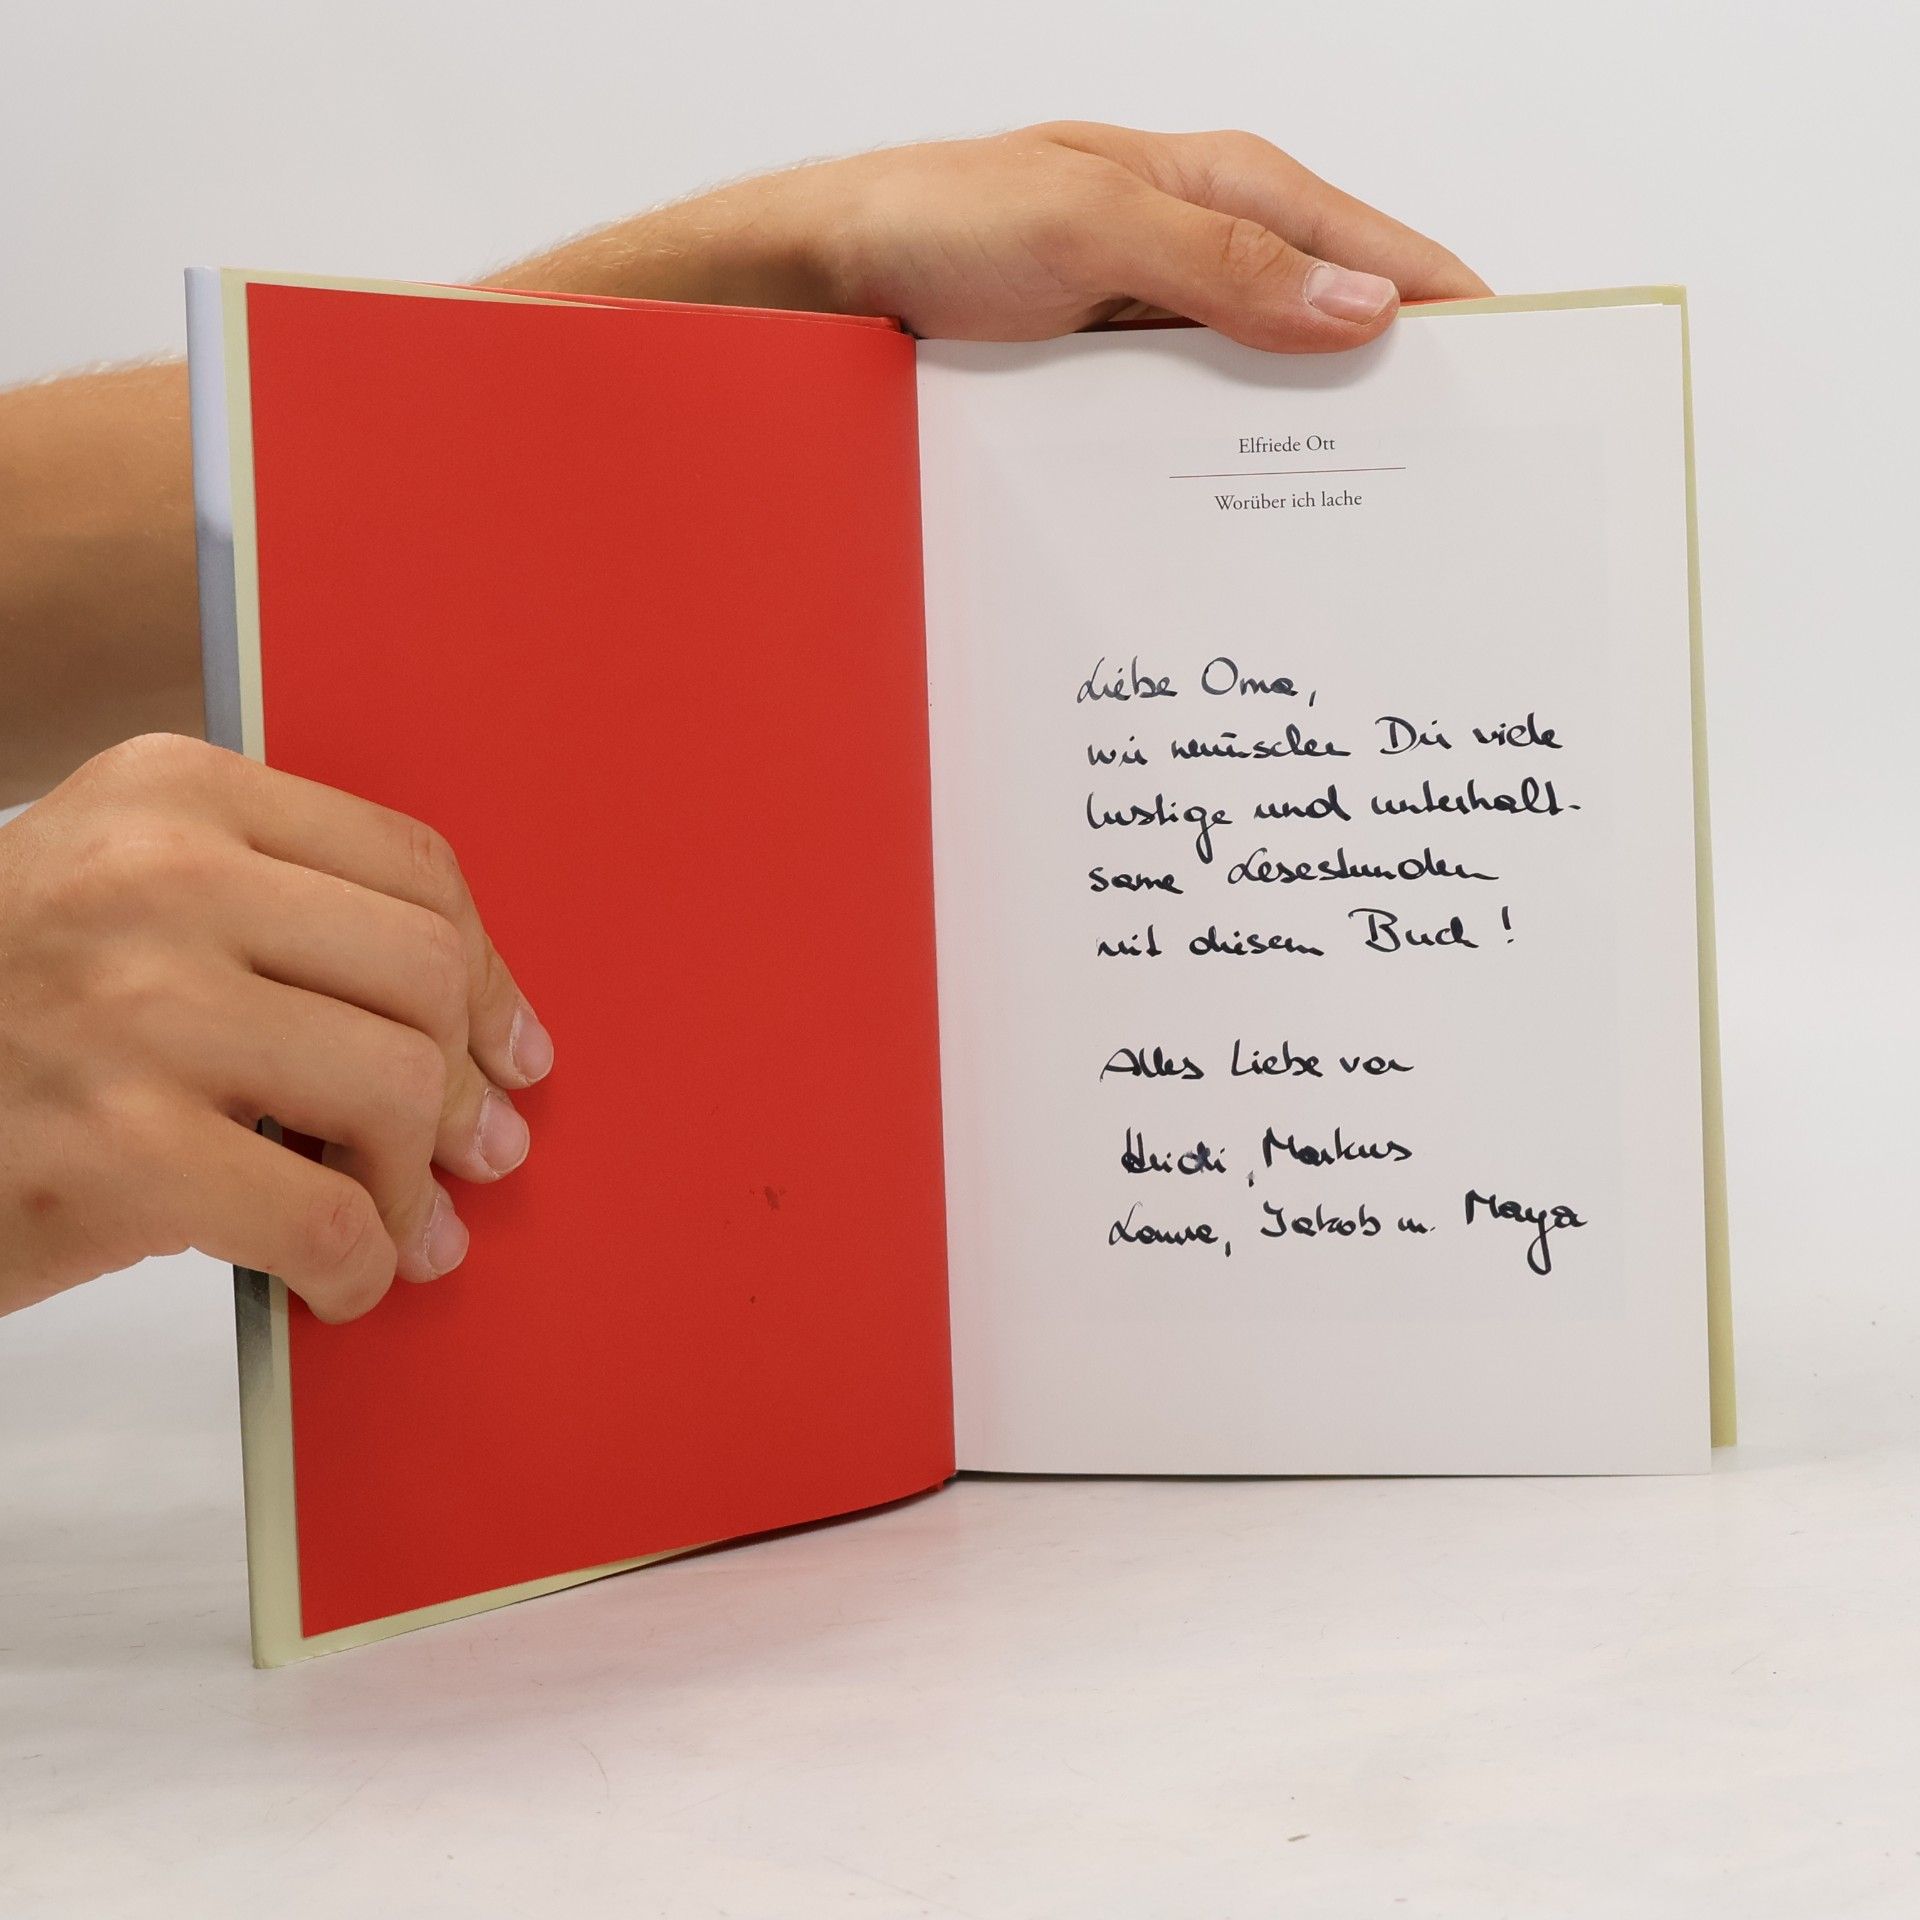 Elfriede Ott
Worüber ich lache
Liebe Oma,
wir wünschen Dir viele
lustige und unterhalt-
same Lesestunden
mit diesem Buch!
Alles Liebe von
Heidi, Markus
Jakob u. Maya